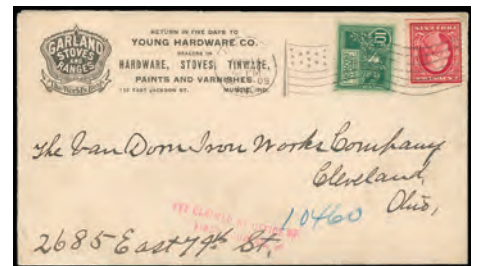 GARLAND
STOVES
AND
RANGES
The World's Best
RETURN IN FIVE DAYS TO
YOUNG HARDWARE CO.
DEALERS IN
HARDWARE, STOVES, TINWARE,
PAINTS AND VARNISHES.
EAST JACKSON ST. MUNCIE, IND.
10
The Van Dorn Iron Works Company
Cleveland,
Ohio,
10460
2685 East 79th St.